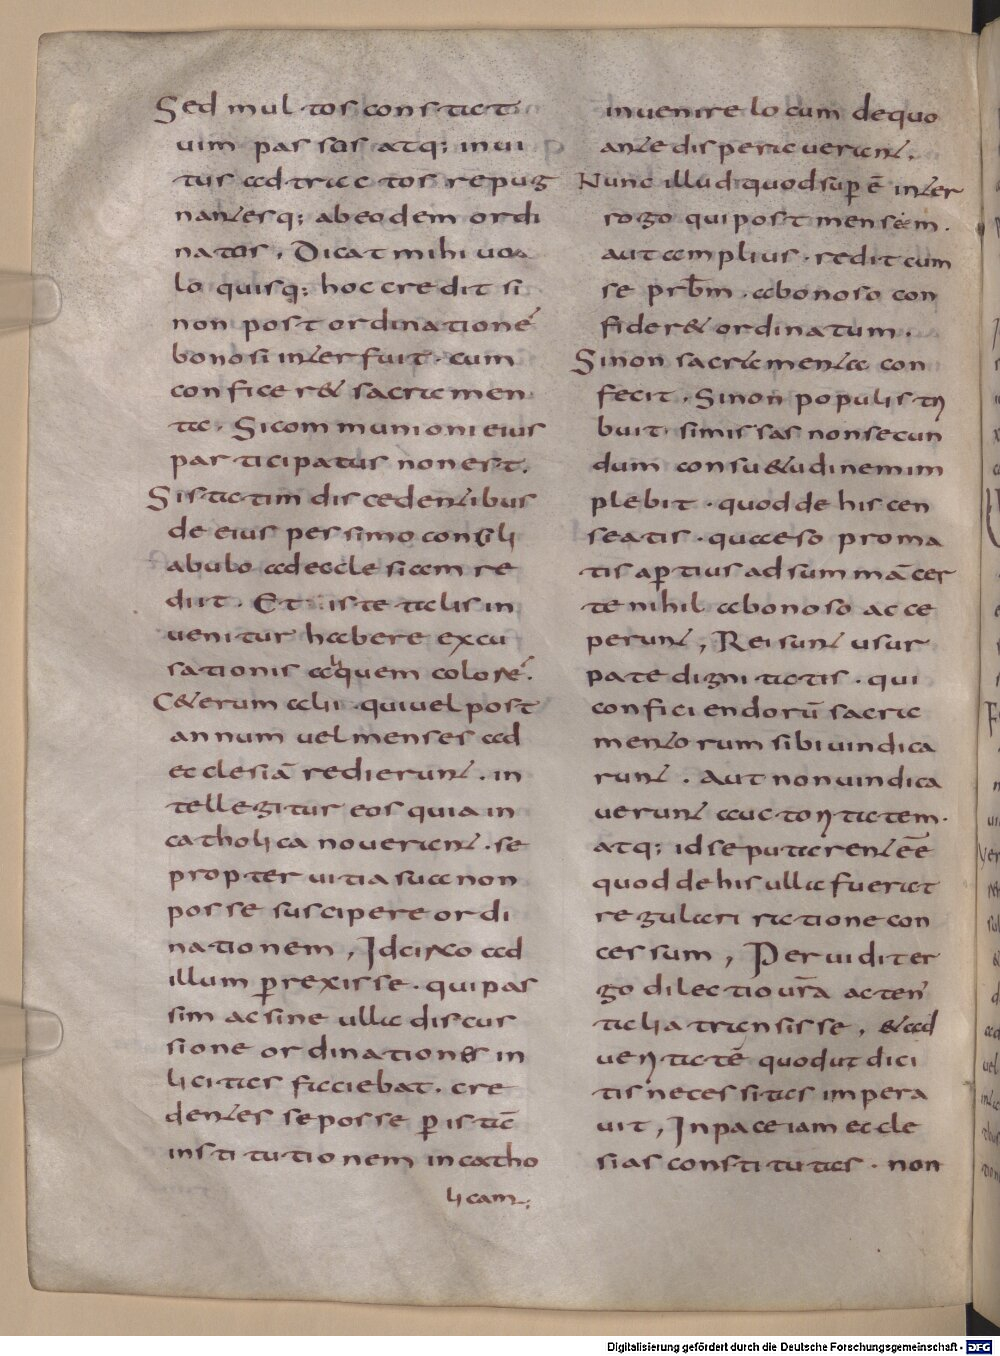 Sed multos constat
uim passos atq; inui
tus adtractos repug
nantesq; abeodem ordi
natos, Dicat mihi uoa
lo quisq; hoc credit si
non post ordinationē
bonosi interfuit · cum
conficer& sacramen
ta · Si communioni eius
participatus non est.
Si statim discedentibus
de eius pessimo consili
abulo ad ecclesiam re
diit. Et iste talis in
uenitur habere excu
sationis aliquem colorē.
C&erum alii · qui uel post
annum uel menses ad
ecclesiā redierunt · in
tellegitur eos quia in
catholica nouerant · se
propter uitia sua non
posse suscipere ordi
nationem, Idcirco ad
illum prexisse · qui pas
sim ac sine ulla discus
sione ordinationes in
licitas faciebat. cre
dentes se posse p istā
institutionem in catho
licam;
inuenire locum de quo
ante disperauerant.
Nunc illud quod sup ē inter
rogo qui post mensem ·
aut amplius · redit cum
se prbm · abonoso con
fider& ordinatum.
Si non sacramenta con
fecit · Si non populis tri
buit · si missas non secun
dum consu&udinem im
plebit · quod de his cen
seatis · quaeso proma
tis aptius ad summā cer
te nihil abonoso acce
perunt, Rei sunt usur
pate dignitatis · qui
conficiendorū sacra
mentorum sibi uindica
runt · Aut non uindica
uerunt auctoritatem ·
atq; id se putarent eē
quod de his ulla fuerat
regulari ratione con
cessum, Peruidit er
go dilectio urā actent
talia transisse, & ad
ueritatē quod ut dici
tis necessitas impera
uit, In pace iam eccle
sias constitutas · non
Digitalisierung gefördert durch die Deutsche Forschungsgemeinschaft - DFG